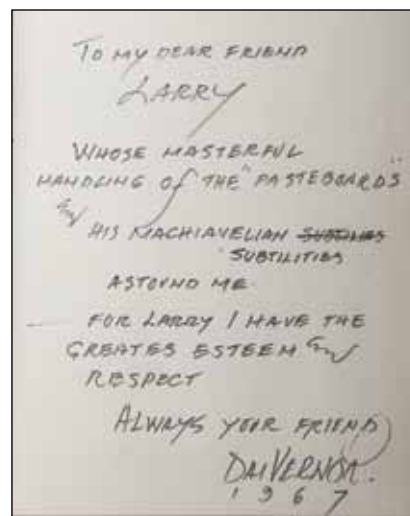 TO MY DEAR FRIEND
LARRY
WHOSE MASTERFUL
HANDLING OF THE "PASTEBOARDS"
&
HIS MACHIAVELIAN
SUBTILITIES
ASTOUND ME.
FOR LARRY I HAVE THE
GREATES ESTEEM &
RESPECT
ALWAYS YOUR FRIEND
DAI VERNON.
1967